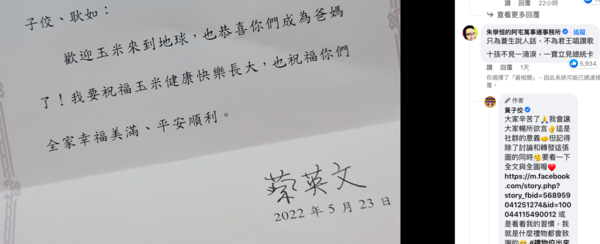 子佼、耿如：
歡迎玉米來到地球，也恭喜你們成為爸媽
了！我要祝福玉米健康快樂長大，也祝福你們
全家幸福美滿、平安順利。
蔡英文
2022 年 5 月 23 日
讚 回覆 22小時
查看更多回覆
朱學恒的阿宅萬事通事務所 · 追蹤
只為蒼生說人話，不為君王唱讚歌
十孩不見一滴淚，一寶立見總統卡
讚 回覆 1天 5,934
你選擇了「最相關」，因此系統可能已過濾部分回
覆。
作者
黃子佼
大家辛苦了我會讓
大家暢所欲言這是
社群的意義但記得
除了討論和轉發這張
圖的同時要看一下
全文與全圖喔
https://m.facebook
.com/story.php?
story_fbid=568959
041251274&id=100
044115490012 或
是看看我的習慣，我
就是什麼禮物都會致